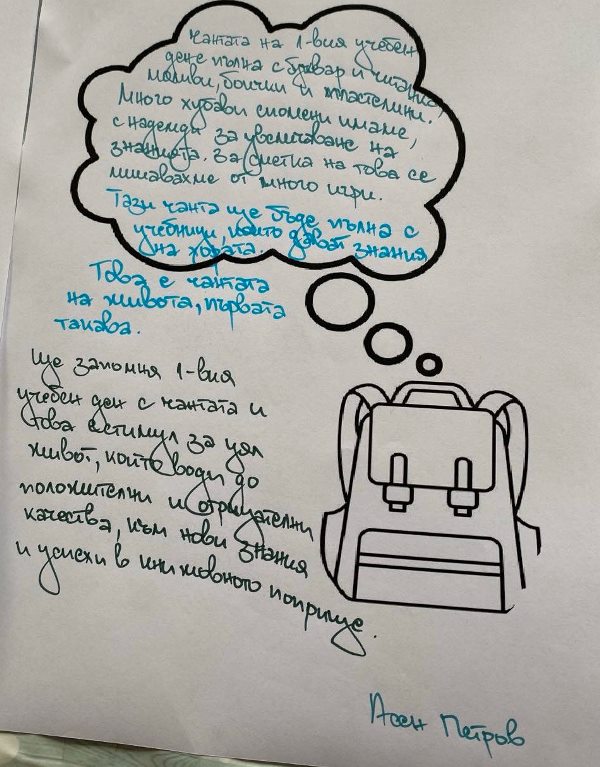 Чантата на 1-вия учебен
ден е пълна с буквар и читанка,
моливи, боички и пластелини.
Много хубави спомени имаме,
с надежди за увеличаване на
знанията. За сметка на това се
лишавахме от много игри.
Тази чанта ще бъде пълна с
учебници, които дават знания
на хората.
Това е чантата
на живота, първата
такава.
Ще запомня 1-вия
учебен ден с чантата и
това е стимул за цял
живот, който води до
положителни и отрицателни
качества, към нови знания
и успехи в книжовното поприще.
Асен Петров